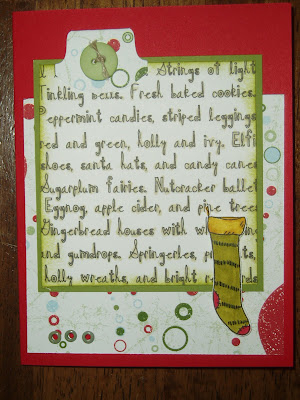 Strings of light
Tinkling bells. Fresh baked cookies.
Peppermint candies, striped leggings
red and green, holly and ivy. Elfin
shoes, santa hats, and candy canes
Sugarplum fairies. Nutcracker ballet
Eggnog, apple cider, and pine trees
Gingerbread houses with
and gumdrops. Springerles,
holly wreaths, and bright